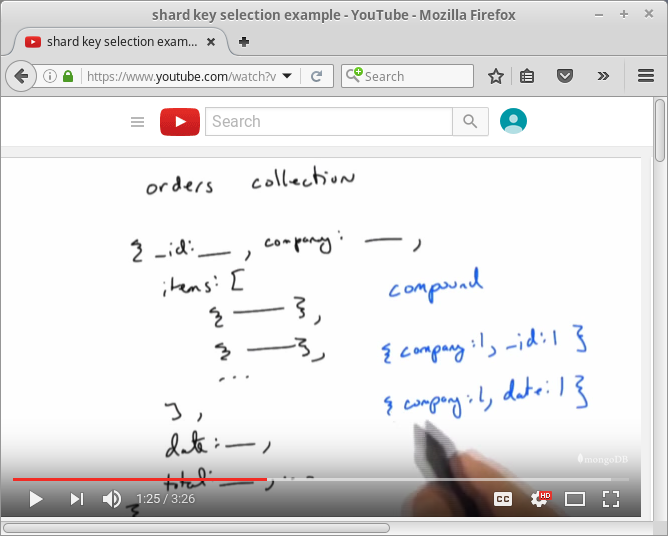 shard key selection example - YouTube - Mozilla Firefox
shard key selection exam...
https://www.youtube.com/watch?v
Search
Search
orders collection
{ _id: __ , company: __ ,
items: [
{ __ },
{ __ },
...
],
date: __ ,
total: __ , ...
}
compound
{ company:1, _id:1 }
{ company:1, date:1 }
mongoDB
1:25 / 3:26
CC
HD